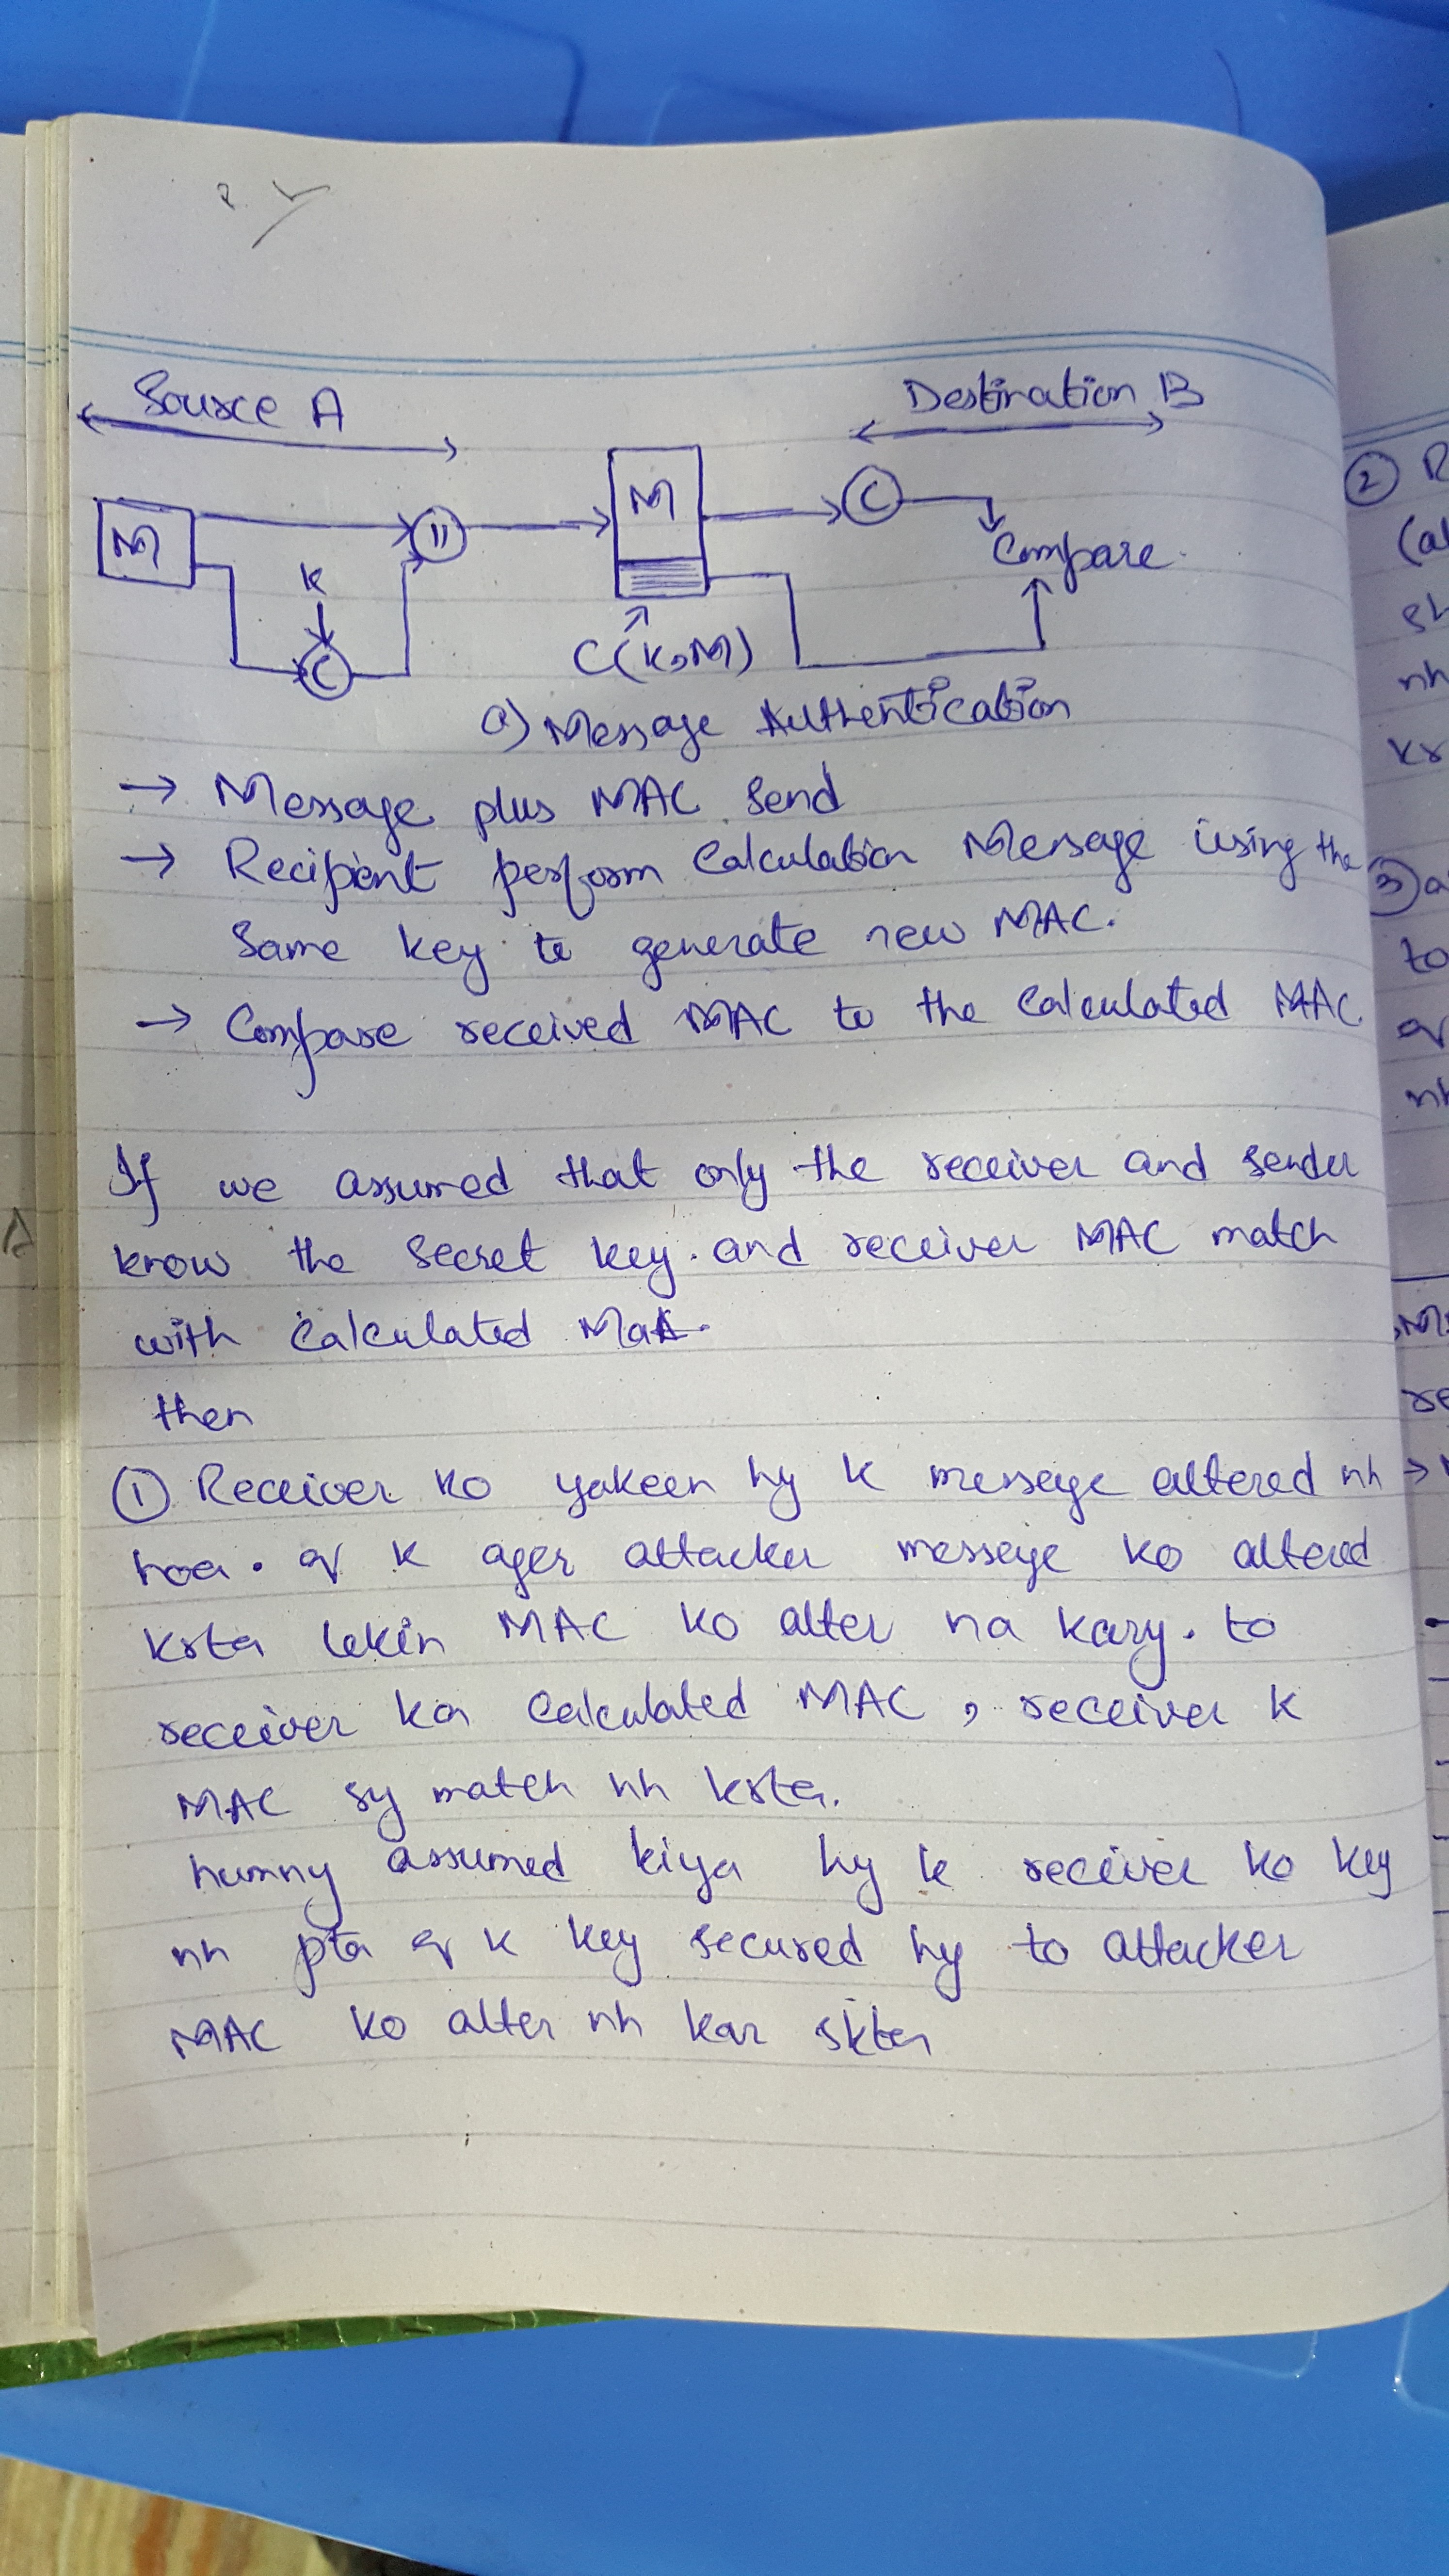 Source A
Destination B
M
K
C
||
M
C(K,M)
C
Compare
a) Message Authentication
→ Message plus MAC send
→ Recipient perform Calculation Message using the
Same key to generate new MAC.
→ Compare received MAC to the Calculated MAC
If we assumed that only the receiver and sender
know the Secret key. and receiver MAC match
with Calculated MAC.
then
① Receiver ko yakeen hy k messege altered nh
hoa. q k ager attacker messege ko altered
krta lekin MAC ko alter na kary. to
receiver ka Calculated MAC, receiver K
MAC sy match nh krta.
humny assumed kiya hy k receiver ko key
nh pta q k key secured hy to attacker
MAC ko alter nh kar skta
② R
(al
sh
nh
kr
③ a
to
q
nh